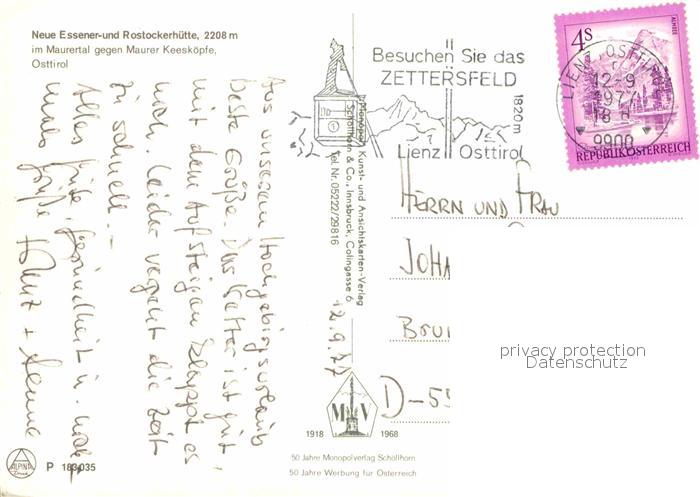 Neue Essener-und Rostockerhütte, 2208 m
im Maurertal gegen Maurer Keesköpfe,
Osttirol
Aus unserem Hochgebirgsurlaub
beste Grüße. Das Wetter ist gut
mit dem Aufsteigen klappt es
noch. Leider vergeht die Zeit
zu schnell. –
Alles Gute, Gesundheit u. noch-
mals Grüße
12.9.77
Monopol Kunst- und Ansichtskarten-Verlag
Schöllhorn & Co., Innsbruck, Colingasse 6
Tel. Nr. 05222/29816
Besuchen Sie das
ZETTERSFELD
1820m
Lienz Osttirol
4S
ALMSEE
REPUBLIK ÖSTERREICH
LIENZ, OSTTIROL
12-9
1977
18
9900
HERRN UND FRAU
JOHA
BRU
D-55
privacy protection
Datenschutz
M V
1918 1968
50 Jahre Monopolverlag Schöllhorn
50 Jahre Werbung für Österreich
ALPINA
Druck
P 183035